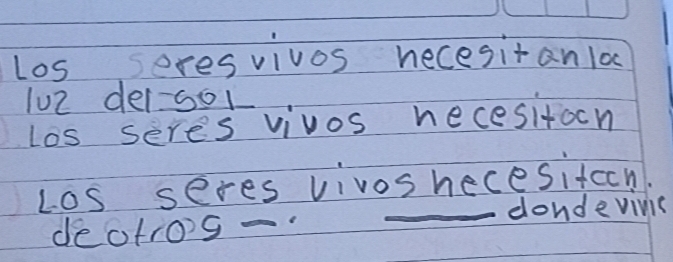 Los seres vivos necesitan la
luz del sol
Los seres vivos necesitan
Los seres vivos necesitan.
____ donde vivir
de otros —.